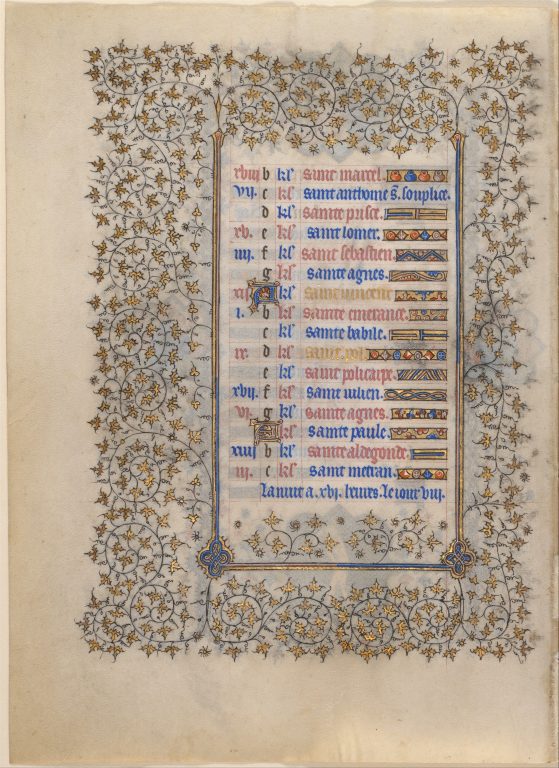 xviij b kl saint marcel.
vij. c kl saint anthoine s. souplice.
d kl sainte prisce.
xv. e kl saint lomer.
iiij. f kl saint sebastien.
g kl sainte agnes.
xij A kl saint vincent.
i. b kl sainte emerance.
c kl sainte babile.
ix. d kl saint pol.
e kl saint policarpe.
xvij. f kl saint iulien.
vi. g kl sainte agnes.
A kl sainte paule.
xiiij b kl sainte aldegonde.
iij. c kl saint metran.
La nuit a .xvi. heures. Le iour viij.